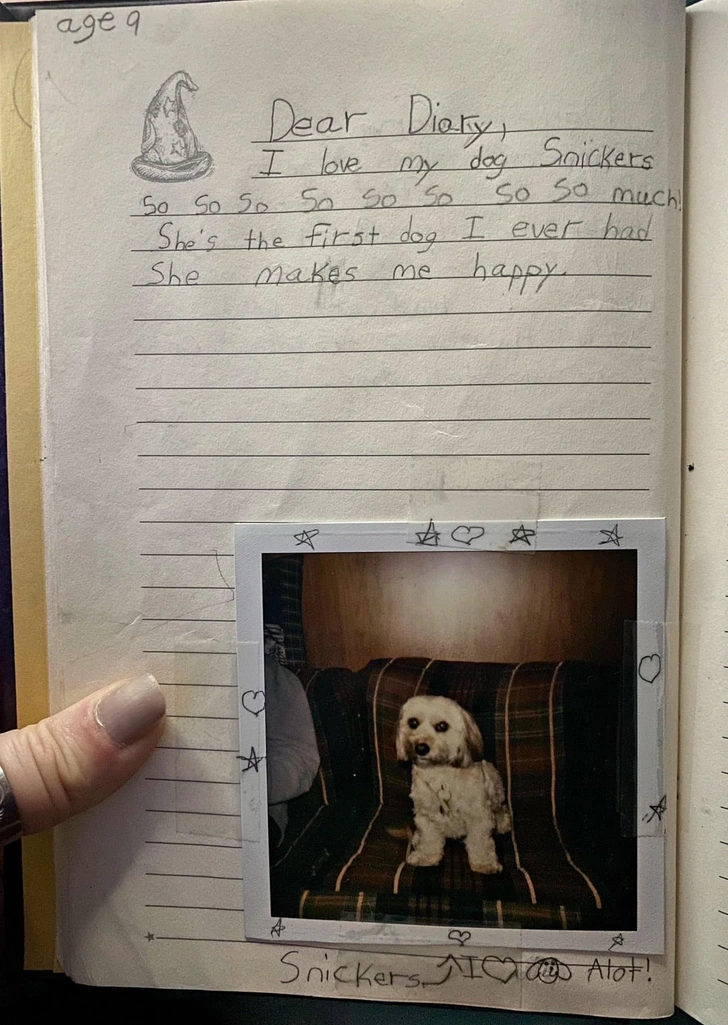 age 9
Dear Diary,
I love my dog Snickers
So So So So So So So So much!
She's the first dog I ever had
She makes me happy.
Snickers I ♡ Alot!